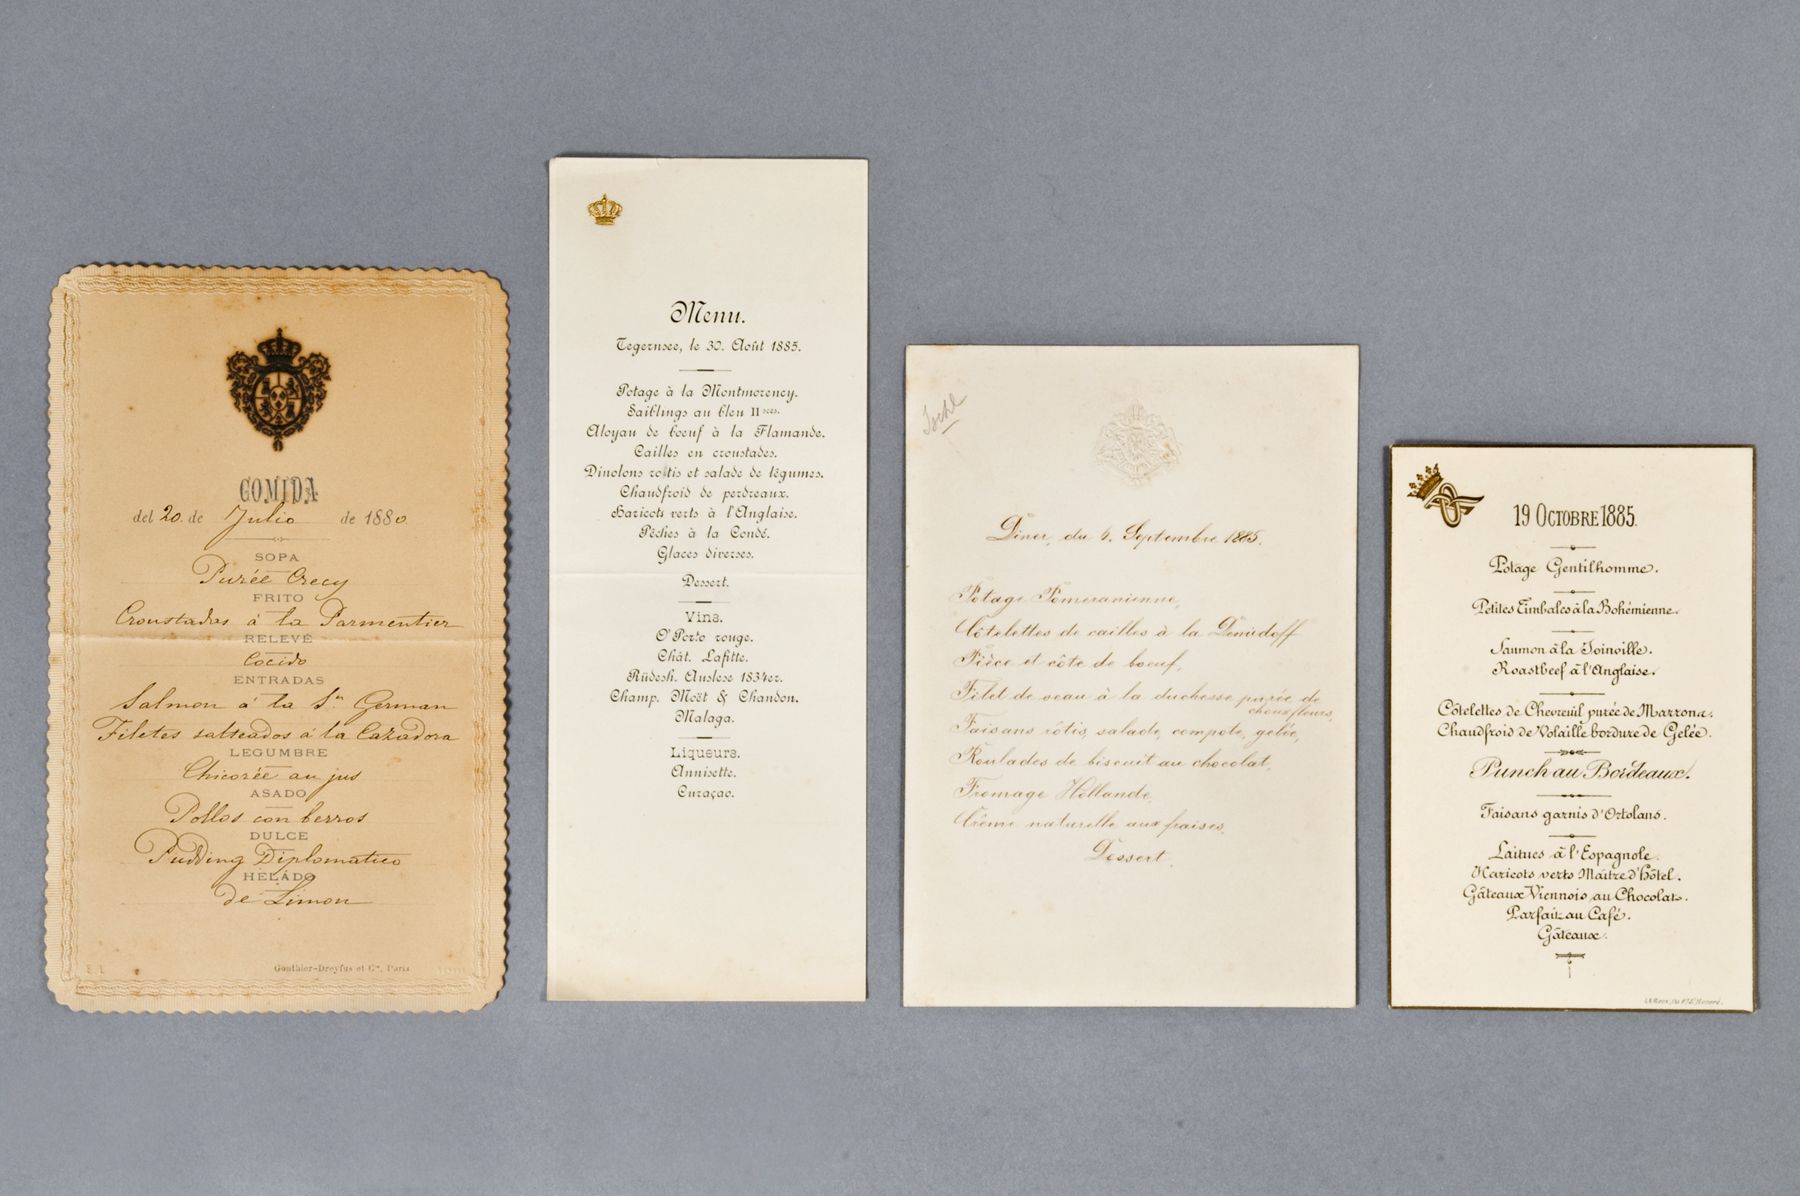 COMIDA
del 20 de Julio de 1880
SOPA
Purée Crecy
FRITO
Croustadas á la Parmentier
RELEVÉ
Cocido
ENTRADAS
Salmon á la Sn German
Filetes salteados á la Cazadora
LEGUMBRE
Chicorée au jus
ASADO
Pollos con berros
DULCE
Pudding Diplomatico
HELADO
de Limon
Gouthier-Dreyfus et Cie, Paris
Menu.
Tegernsee, le 30. Août 1885.
Potage à la Montmorency.
Saiblings au bleu II
Aloyau de boeuf à la Flamande.
Cailles en croustades.
Dinolons rotis et salade de légumes.
Chaudfroid de perdreaux.
Haricots verts à l'Anglaise.
Pêches à la Condé.
Glaces diverses.
Dessert.
Vins.
O'Porto rouge.
Chât. Lafitte.
Rüdesh. Auslese 1834er.
Champ. Moët & Chandon.
Malaga.
Liqueurs.
Annisette.
Curaçao.
Ischl
Dîner, du 4. Septembre 1885.
Potage Pomeranienne,
Côtelettes de cailles à la Demidoff
Pièce et côte de boeuf,
Filet de veau à la duchesse purée de
chouxfleurs,
Faisans rôtis, salade, compote, gelée,
Roulades de biscuit au chocolat,
Fromage Hollande,
Crême naturelle aux fraises,
Dessert.
19 OCTOBRE 1885.
Potage Gentilhomme.
Petites Timbales à la Bohémienne.
Saumon à la Joinville.
Roastbeef à l'Anglaise.
Côtelettes de Chevreuil purée de Marrons.
Chaudfroid de Volaille bordure de Gelée.
Punch au Bordeaux.
Faisans garnis d'Ortolans.
Laitues à l'Espagnole.
Haricots verts Maître d'hôtel.
Gâteaux Viennois au Chocolat.
Parfait au Café.
Gâteaux.